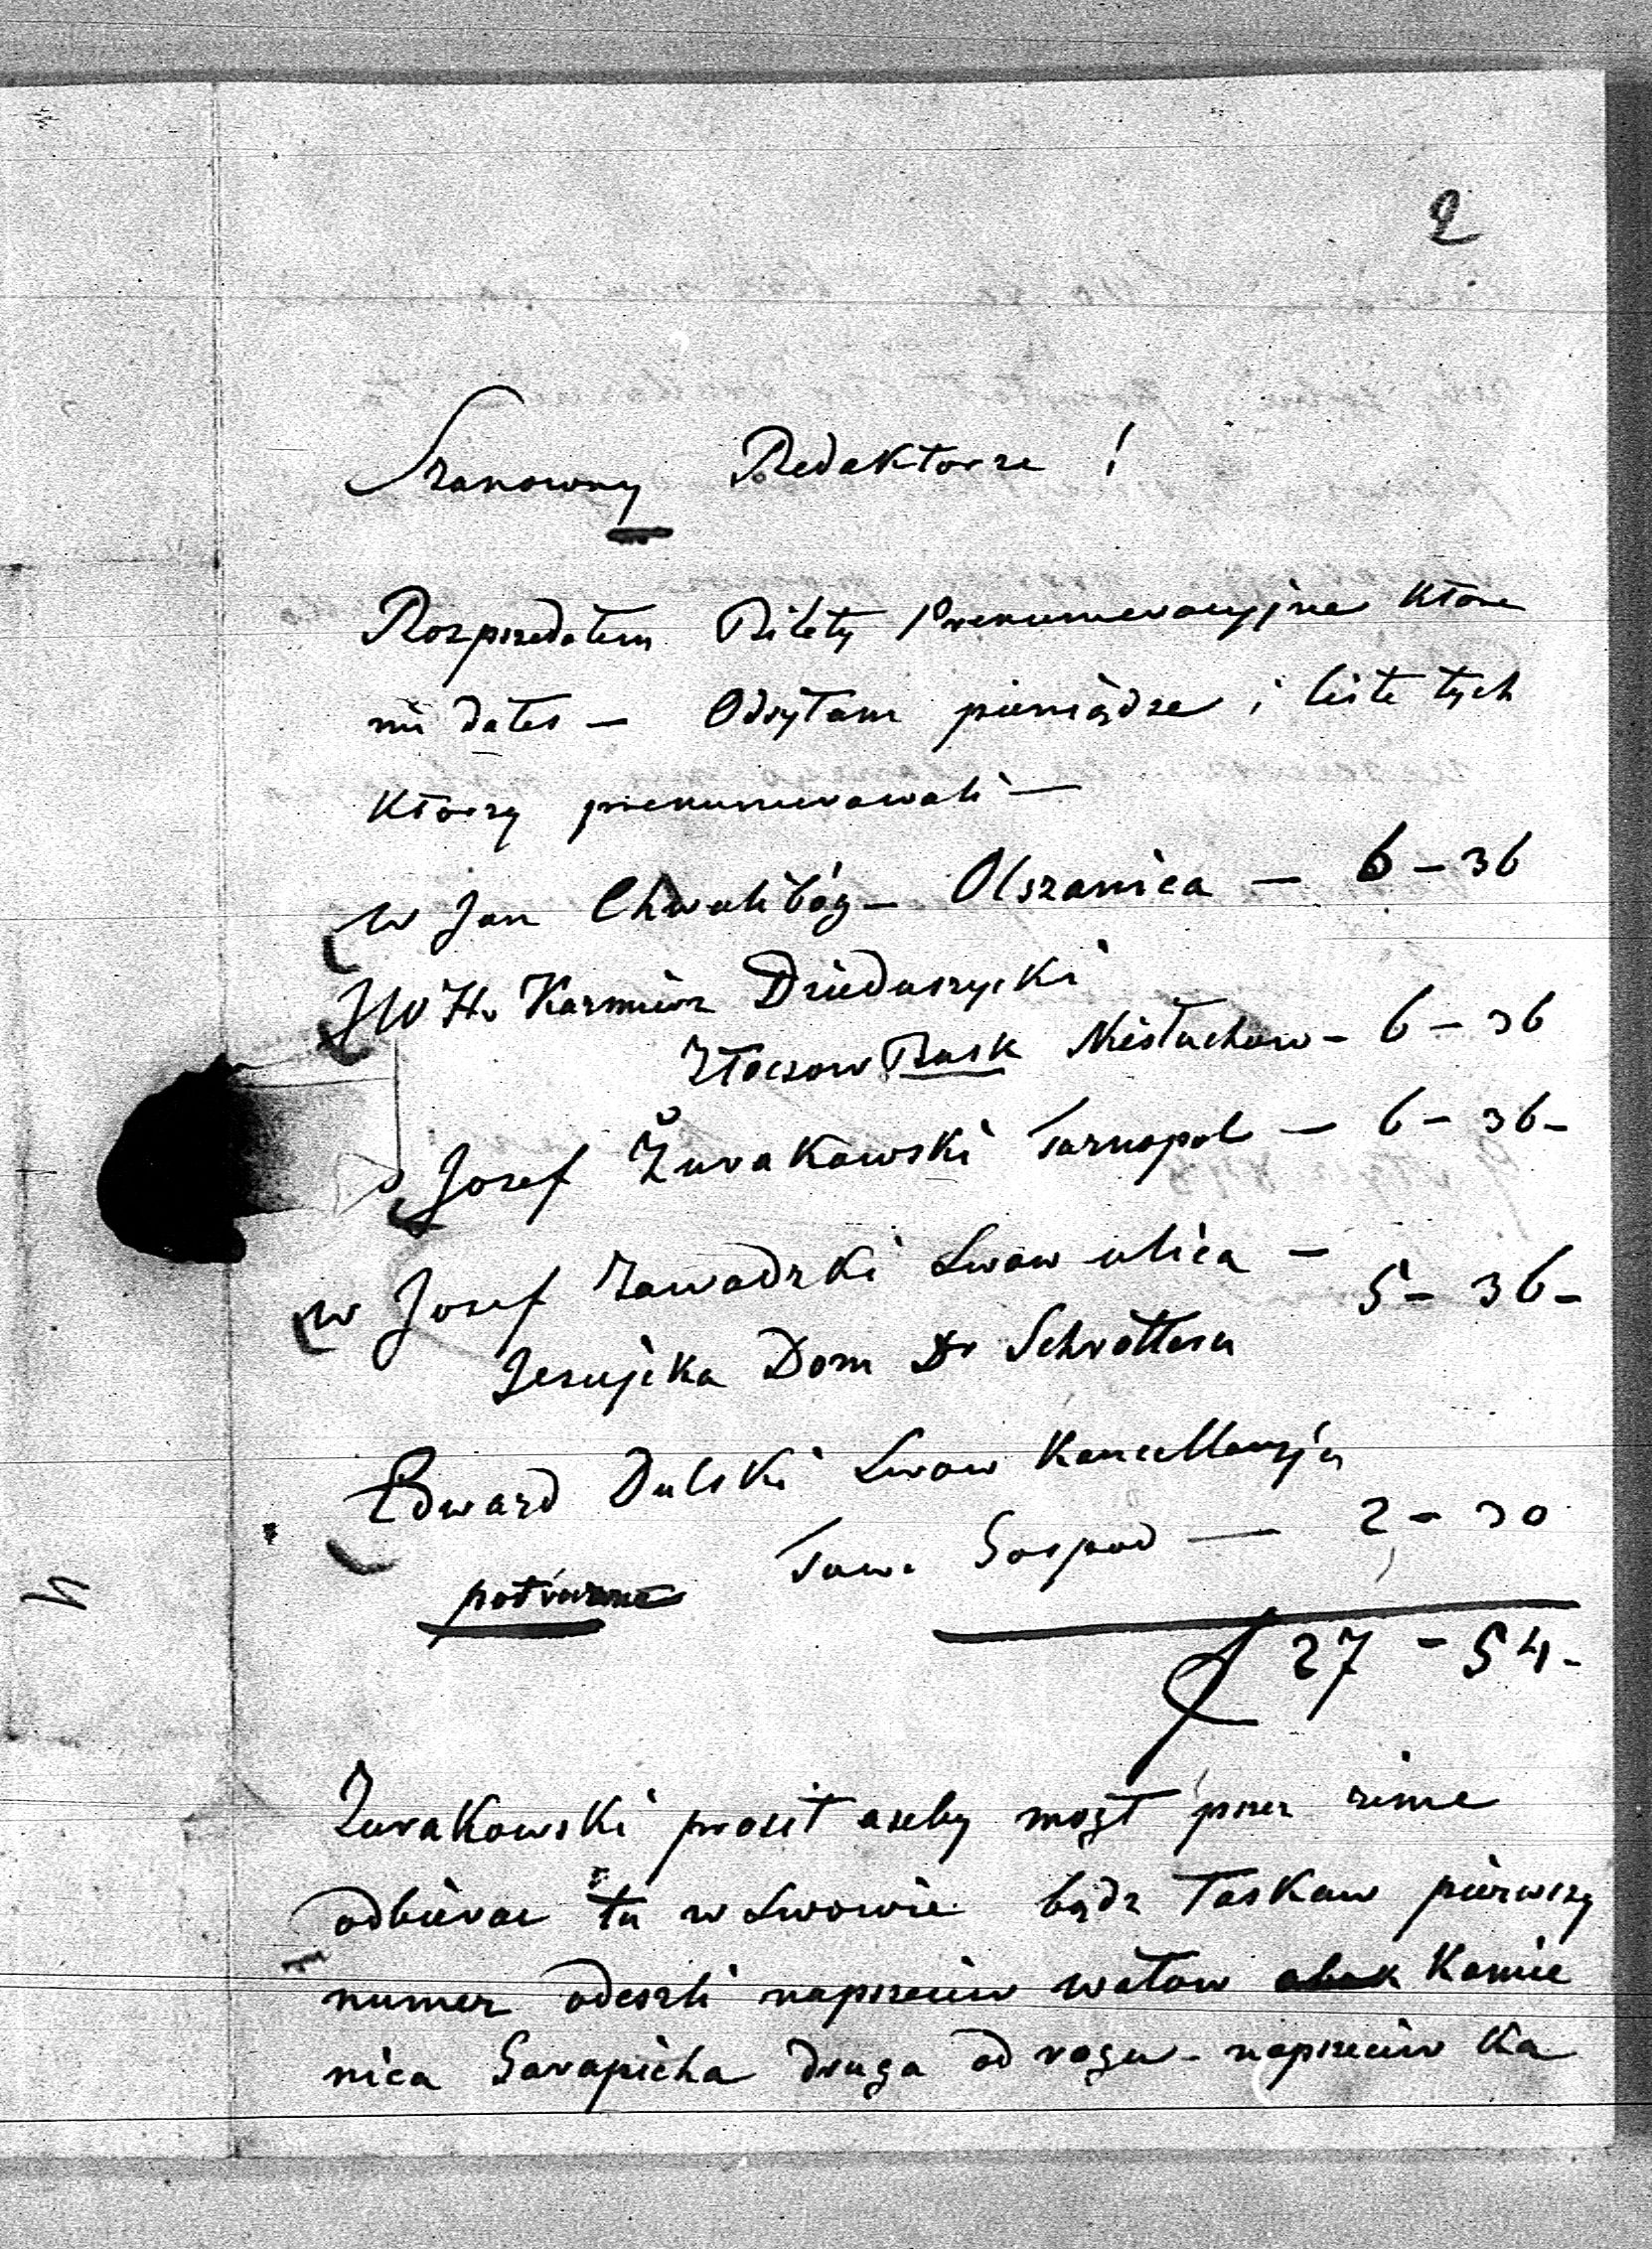 2
Szanowny Redaktorze !
Rozprzedałem Bilety Prenumeracyjne które
mi dałes — Odsyłam pieniądze i liste tych
którzy prenumerowali —
W Jan Chwalibóg — Olszanica — 6 - 36
JW Hr Kazmierz Dzieduszycki
Złoczow Busk Niesłuchow - 6 - 36
Josef Żurakowski Tarnopol — 6 - 36 -
W Josef Zawadzki Lwow ulica -
5 - 36 -
Jesujcka Dom Dr Schrottera
Edward Dulski Lwow Kancellaryja
Tow. Gospod — 2 - 30
półroczne
27 - 54 -
Żurakowski prosił azeby mogł przez zime
odbierac tu w Lwowie bądz łaskaw pierwszy
numer odeszli naprzeciw wałow obok Kamie
nica Garapicha druga od rogu - naprzeciw Ka